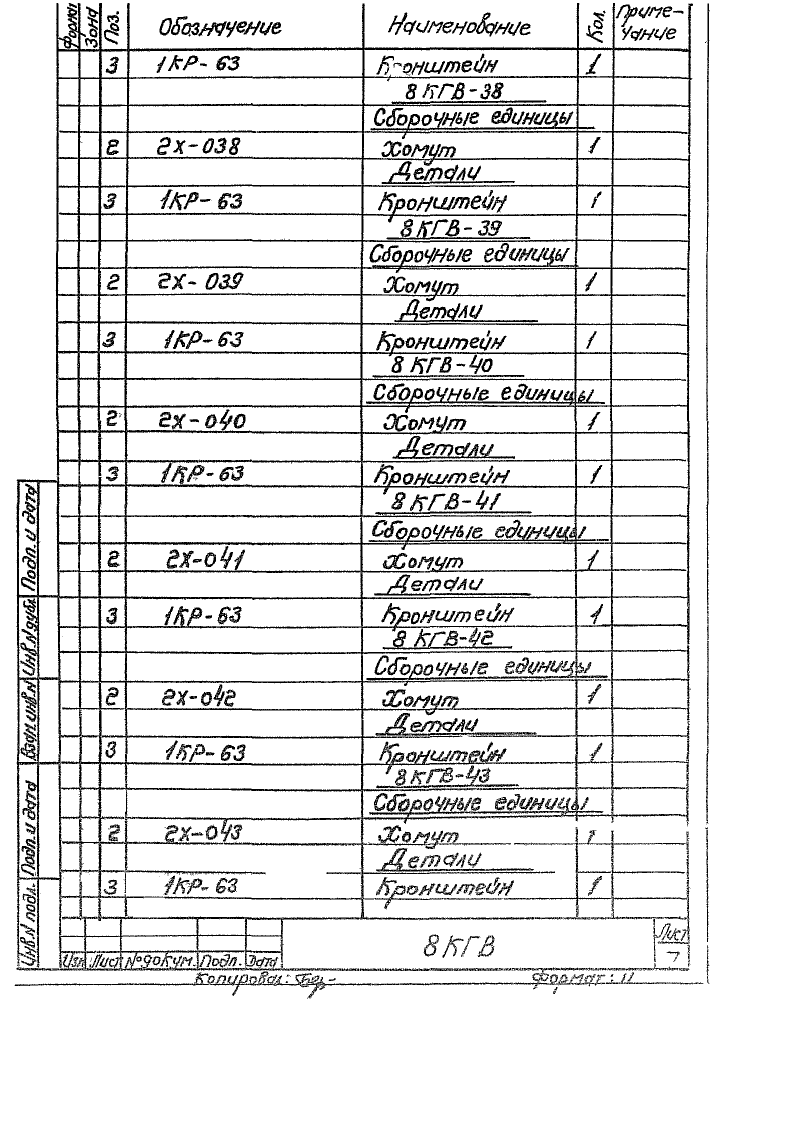 Формат Зона Поз. Обозначение Наименование Кол. Приме-
чание
3 1КР-63 Кронштейн 1
8 КГВ-38
Сборочные единицы
2 2Х-038 Хомут 1
Детали
3 1КР-63 Кронштейн 1
8 КГВ-39
Сборочные единицы
2 2Х-039 Хомут 1
Детали
3 1КР-63 Кронштейн 1
8 КГВ-40
Сборочные единицы
2 2Х-040 Хомут 1
Детали
3 1КР-63 Кронштейн 1
8 КГВ-41
Сборочные единицы
2 2Х-041 Хомут 1
Детали
3 1КР-63 Кронштейн 1
8 КГВ-42
Сборочные единицы
2 2Х-042 Хомут 1
Детали
3 1КР-63 Кронштейн 1
8 КГВ-43
Сборочные единицы
2 2Х-043 Хомут 1
Детали
3 1КР-63 Кронштейн 1
Подп. и дата
Инв.N дубл.
Взам. инв.N
Подп. и дата
Инв.N подл.
Изм Лист №докум. Подп. Дата
8КГВ
Лист
7
Копировал: Формат: 11